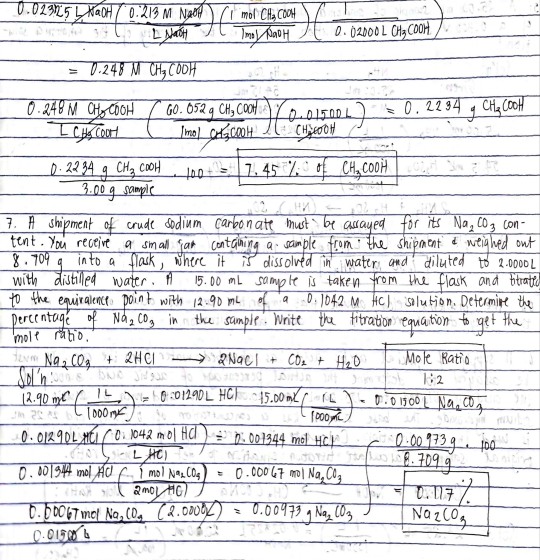 0.02325 L NaOH (0.213 M NaOH / L NaOH) (1 mol CH3COOH / 1mol NaOH) (1 / 0.02000 L CH3COOH)
= 0.248 M CH3COOH
0.248 M CH3COOH / L CH3COOH (60.052 g CH3COOH / 1mol CH3COOH) (0.01500 L / CH3COOH) = 0.2234 g CH3COOH
0.2234 g CH3COOH / 3.00 g sample . 100 = 7.45 % of CH3COOH
7. A shipment of crude sodium carbonate must be assayed for its Na2CO3 con-
tent. You receive a small jar containing a sample from the shipment & weighed out
8.709 g into a flask, where it is dissolved in water and diluted to 2.0000L
with distilled water. A 15.00 mL sample is taken from the flask and titrated
to the equivalence point with 12.90 mL of a 0.1042 M HCl solution. Determine the
percentage of Na2CO3 in the sample. Write the titration equation to get the
mole ratio.
Na2CO3 + 2HCl ⟶ 2NaCl + CO2 + H2O
Mole Ratio
1:2
Sol'n:
12.90 mL (1L / 1000mL) = 0.01290L HCl
15.00mL (1L / 1000mL) = 0.01500L Na2CO3
0.01290L HCl (0.1042 mol HCl / L HCl) = 0.001344 mol HCl
0.001344 mol HCl (1 mol Na2CO3 / 2mol HCl) = 0.00067 mol Na2CO3
0.00067mol Na2CO3 / 0.01500 L (2.0000L) = 0.00973 g Na2CO3
0.00973g / 8.709g . 100
= 0.117 %
Na2CO3